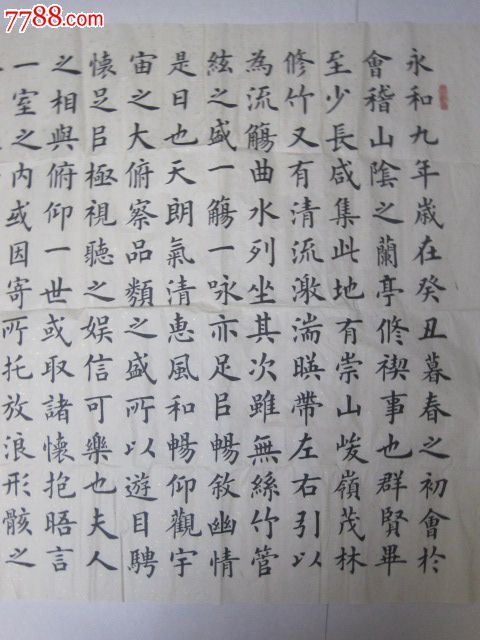 7788.com
永和九年歲在癸丑暮春之初會於
會稽山陰之蘭亭修禊事也群賢畢
至少長咸集此地有崇山峻嶺茂林
修竹又有清流激湍暎帶左右引以
為流觴曲水列坐其次雖無絲竹管
絃之盛一觴一咏亦足㠯暢敘幽情
是日也天朗氣清惠風和暢仰觀宇
宙之大俯察品類之盛所以遊目騁
懷足㠯極視聽之娱信可樂也夫人
之相與俯仰一世或取諸懷抱晤言
一室之内或因寄所托放浪形骸之